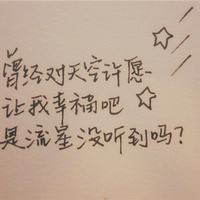 曾经对天空许愿
让我幸福吧
是流星没听到吗？